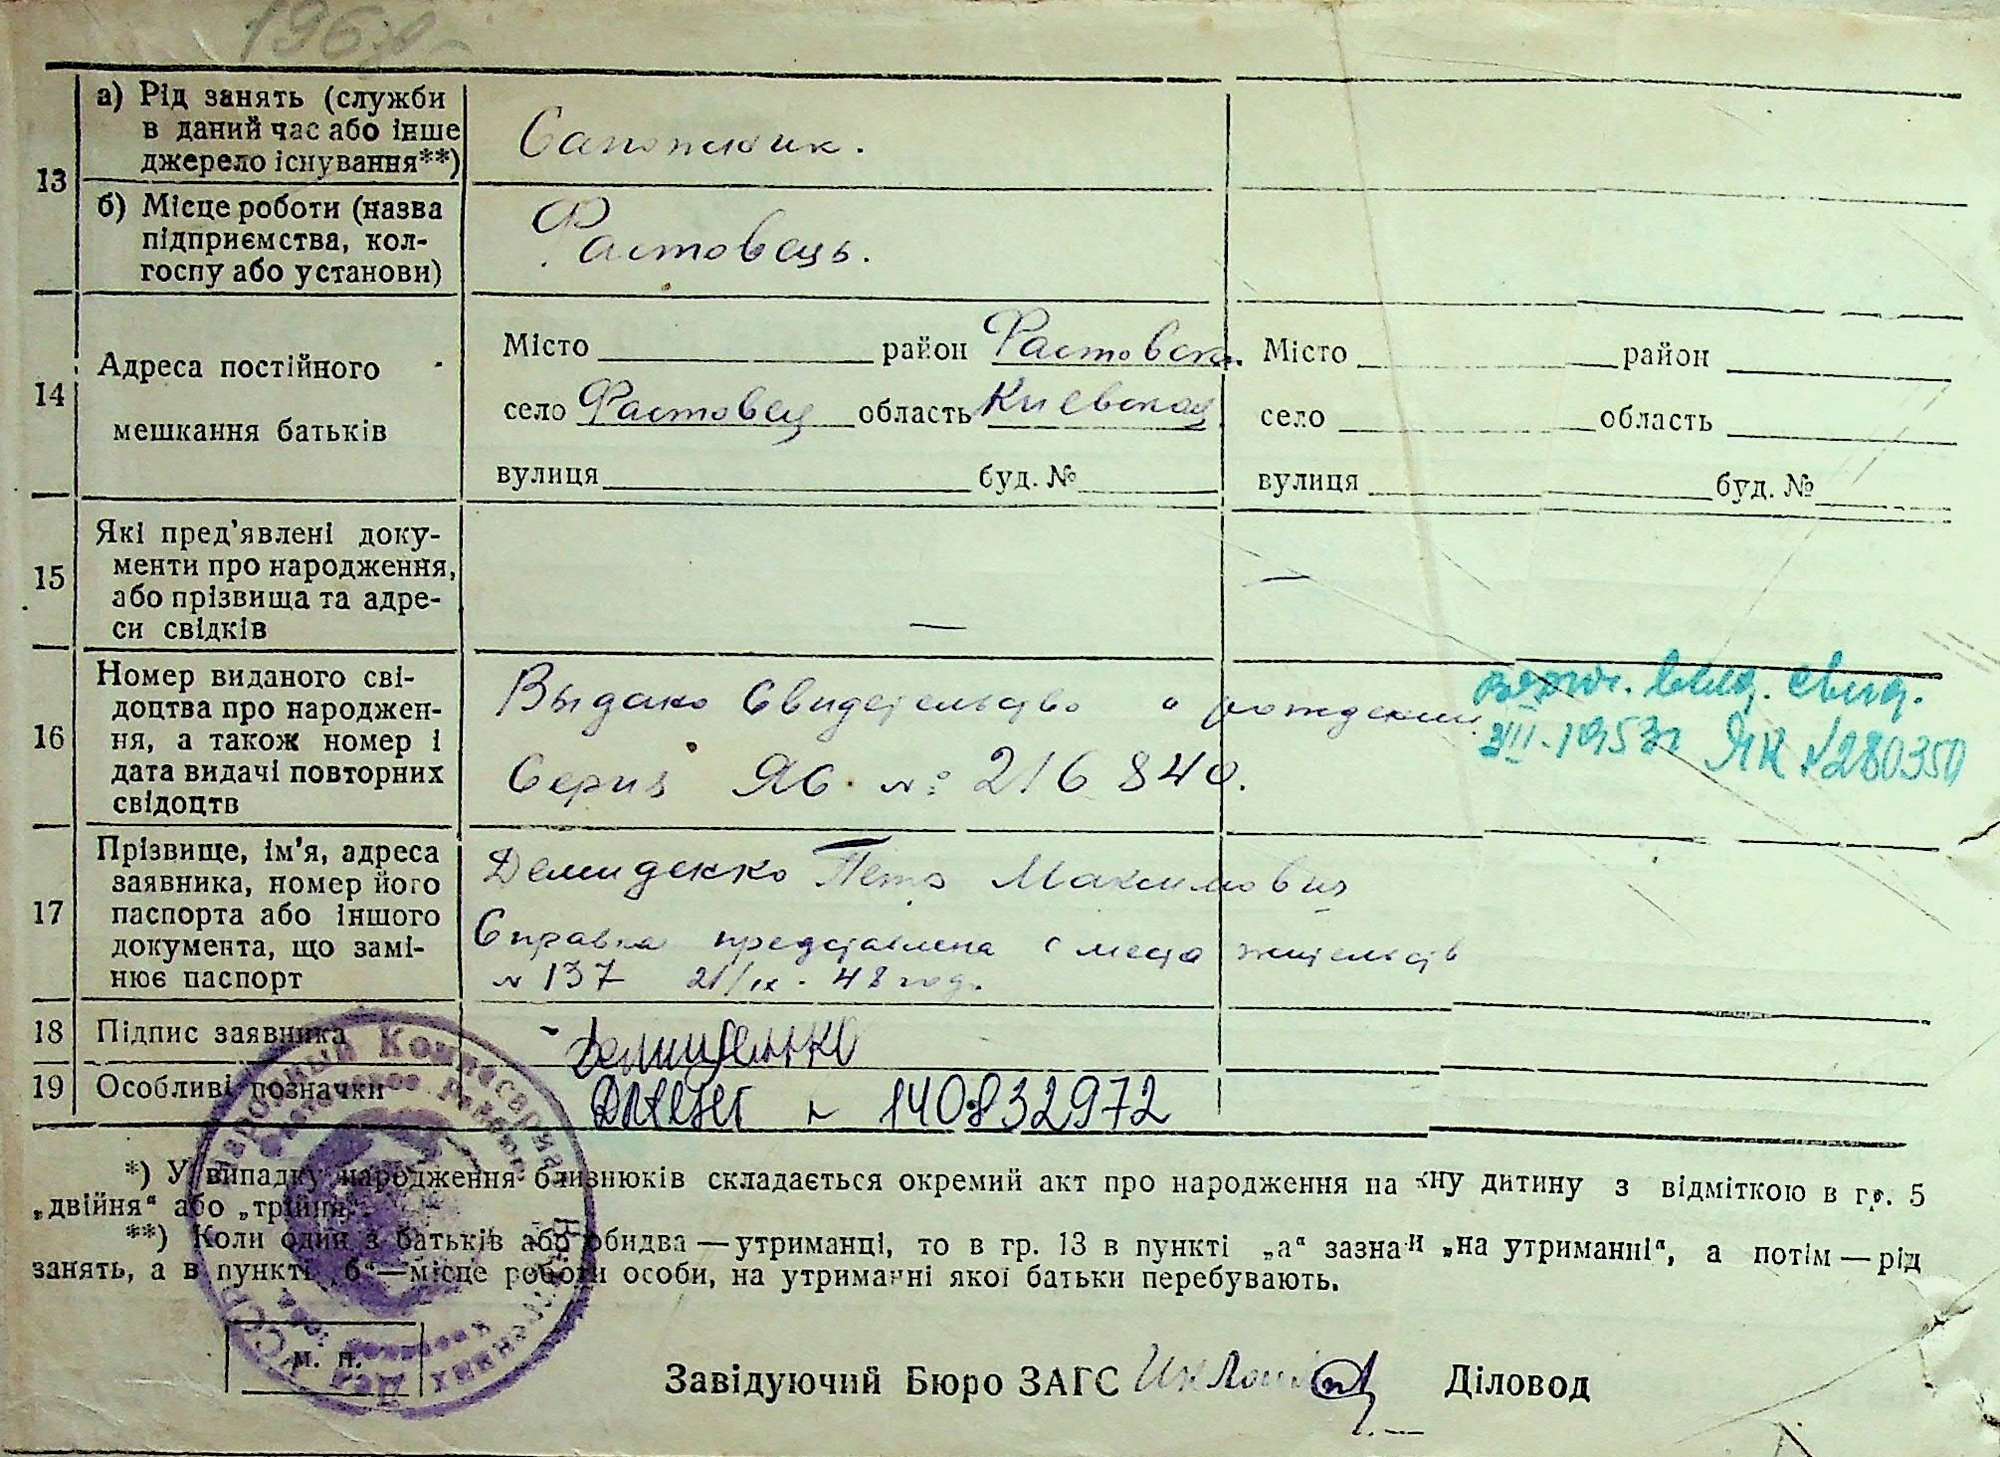 13
а) Рід занять (служби
в даний час або інше
джерело існування**)
Сапожник.
б) Місце роботи (назва
підприємства, кол-
госпу або установи)
Фастовець.
14
Адреса постійного
мешкання батьків
Місто район Фастовск. Місто район
село Фастовец область Киевская село область
вулиця буд. № вулиця буд. №
15
Які пред’явлені доку-
менти про народження,
або прізвища та адре-
си свідків
— —
16
Номер виданого сві-
доцтва про народжен-
ня, а також номер і
дата видачі повторних
свідоцтв
Выдано Свидетельство о рождении
Серия ЯБ. №: 216840.
выд. свид.
3III-1953г ЯК №280350
17
Прізвище, ім’я, адреса
заявника, номер його
паспорта або іншого
документа, що замі-
нює паспорт
Демиденко Петр Максимович
Справка представлена с места жительств
№ 137 21/IX - 48 год.
18 Підпис заявника
Демиденко
19 Особливі позначки
№ 140832972
*) У випадку народження близнюків складається окремий акт про народження на кну дитину з відміткою в гр. 5
„двійня“ або „трійня“.
**) Коли один з батьків або обидва — утриманці, то в гр. 13 в пункті „а“ зазна и „на утриманні“, а потім — рід
занять, а в пункті „б“ — місце роботи особи, на утриманні якої батьки перебувають.
Народный Комиссариат Внутренних Дел УССР
м. п.
Завідуючий Бюро ЗАГС Діловод